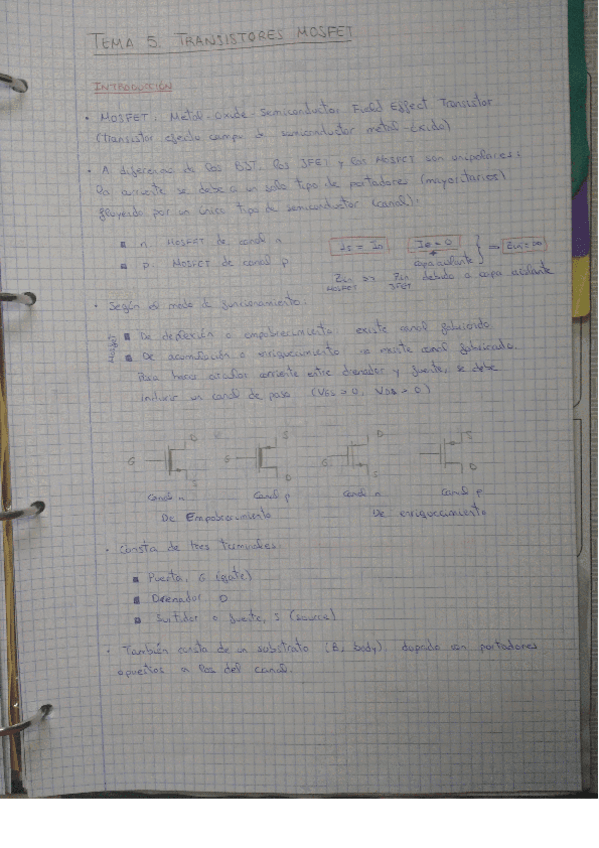 TEMA 5. TRANSISTORES MOSFET
INTRODUCCIÓN
• MOSFET: Metal-Oxide-Semiconductor Field Effect Transistor
(Transistor efecto campo de semiconductor metal-óxido)
• A diferencia de los BJT, los JFET y los MOSFET son unipolares:
la corriente se debe a un solo tipo de portadores (mayoritarios)
fluyendo por un único tipo de semiconductor (canal):
▪ n. MOSFET de canal n
IS = ID
IG = 0
+
capa aislante
⇒ Zin = ∞
▪ p. MOSFET de canal p
Zin MOSFET >> Zin JFET debido a capa aislante
• Según el modo de funcionamiento:
▪ De deplexión o empobrecimiento: existe canal fabricado
▪ De acumulación o enriquecimiento: no existe canal fabricado.
Para hacer circular corriente entre drenador y fuente, se debe
inducir un canal de paso (VGS > 0, VDS > 0)
D S D S
G G G
S D S D
Canal n Canal p Canal n Canal p
De Empobrecimiento De enriquecimiento
• Consta de tres terminales:
▪ Puerta, G (gate)
▪ Drenador D
▪ Surtidor o fuente, S (source)
• También consta de un substrato (B, body), dopado con portadores
opuestos a los del canal.